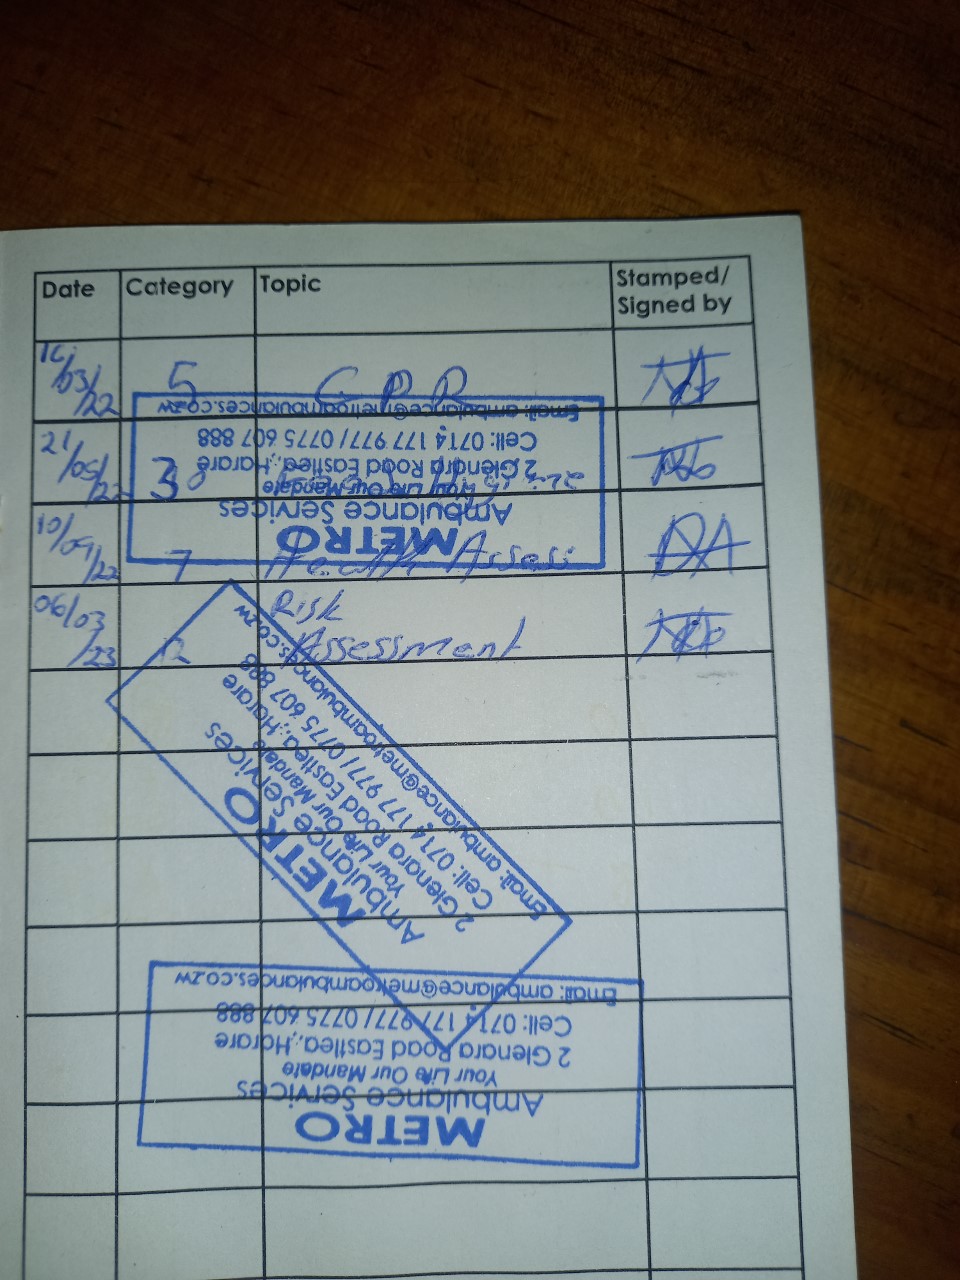 Date Category Topic Stamped/ Signed by
/03/ /22 5 CPR
21/05/ /22 3
10/09/ /22 7 Health Assess
06/03 /23 12 Risk Assessment
METRO
Ambulance Services
Your Life Our Mandate
2 Glenara Road Eastlea, Harare
Cell: 0714 177 977 / 0775 607 888
Email: ambulance@metroambulances.co.zw
METRO
Ambulance Services
Your Life Our Mandate
2 Glenara Road Eastlea, Harare
Cell: 0714 177 977 / 0775 607 888
Email: ambulance@metroambulances.co.zw
METRO
Ambulance Services
Your Life Our Mandate
2 Glenara Road Eastlea, Harare
Cell: 0714 177 977 / 0775 607 888
Email: ambulance@metroambulances.co.zw